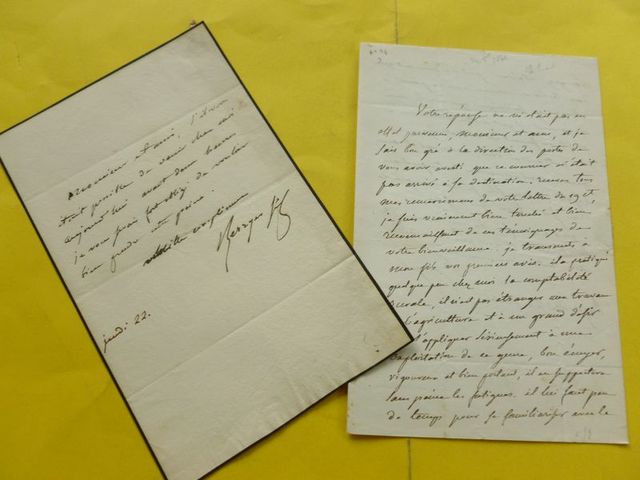 Monsieur et ami, s'il vous
était possible de venir chez moi
aujourd'hui avant deux heures
je vous serais fort obligé de vouloir
bien prendre cette peine.
mille complimens
Berryer fils
jeudi 22.
Votre réponse ne m'était pas en
effet parvenue, Monsieur et ami, et je
sais bon gré à la direction des postes de
vous avoir averti que ce courrier n'était
pas arrivé à sa destination. recevez tous
mes remerciemens de votre lettre du 19 et,
je suis vraiment bien touché et bien
reconnaissant de ces témoignages de
votre bienveillance. je transmets à
mon fils vos premiers avis. il a pratiqué
quelque peu chez moi la comptabilité
rurale, il n'est pas étranger aux travaux
d'agriculture et a un grand désir
d'appliquer sérieusement à une
exploitation de ce genre, bon écuyer,
vigoureux et bien portant, il en supportera
sans peine les fatigues. il lui faut peu
de temps pour se familiariser avec le